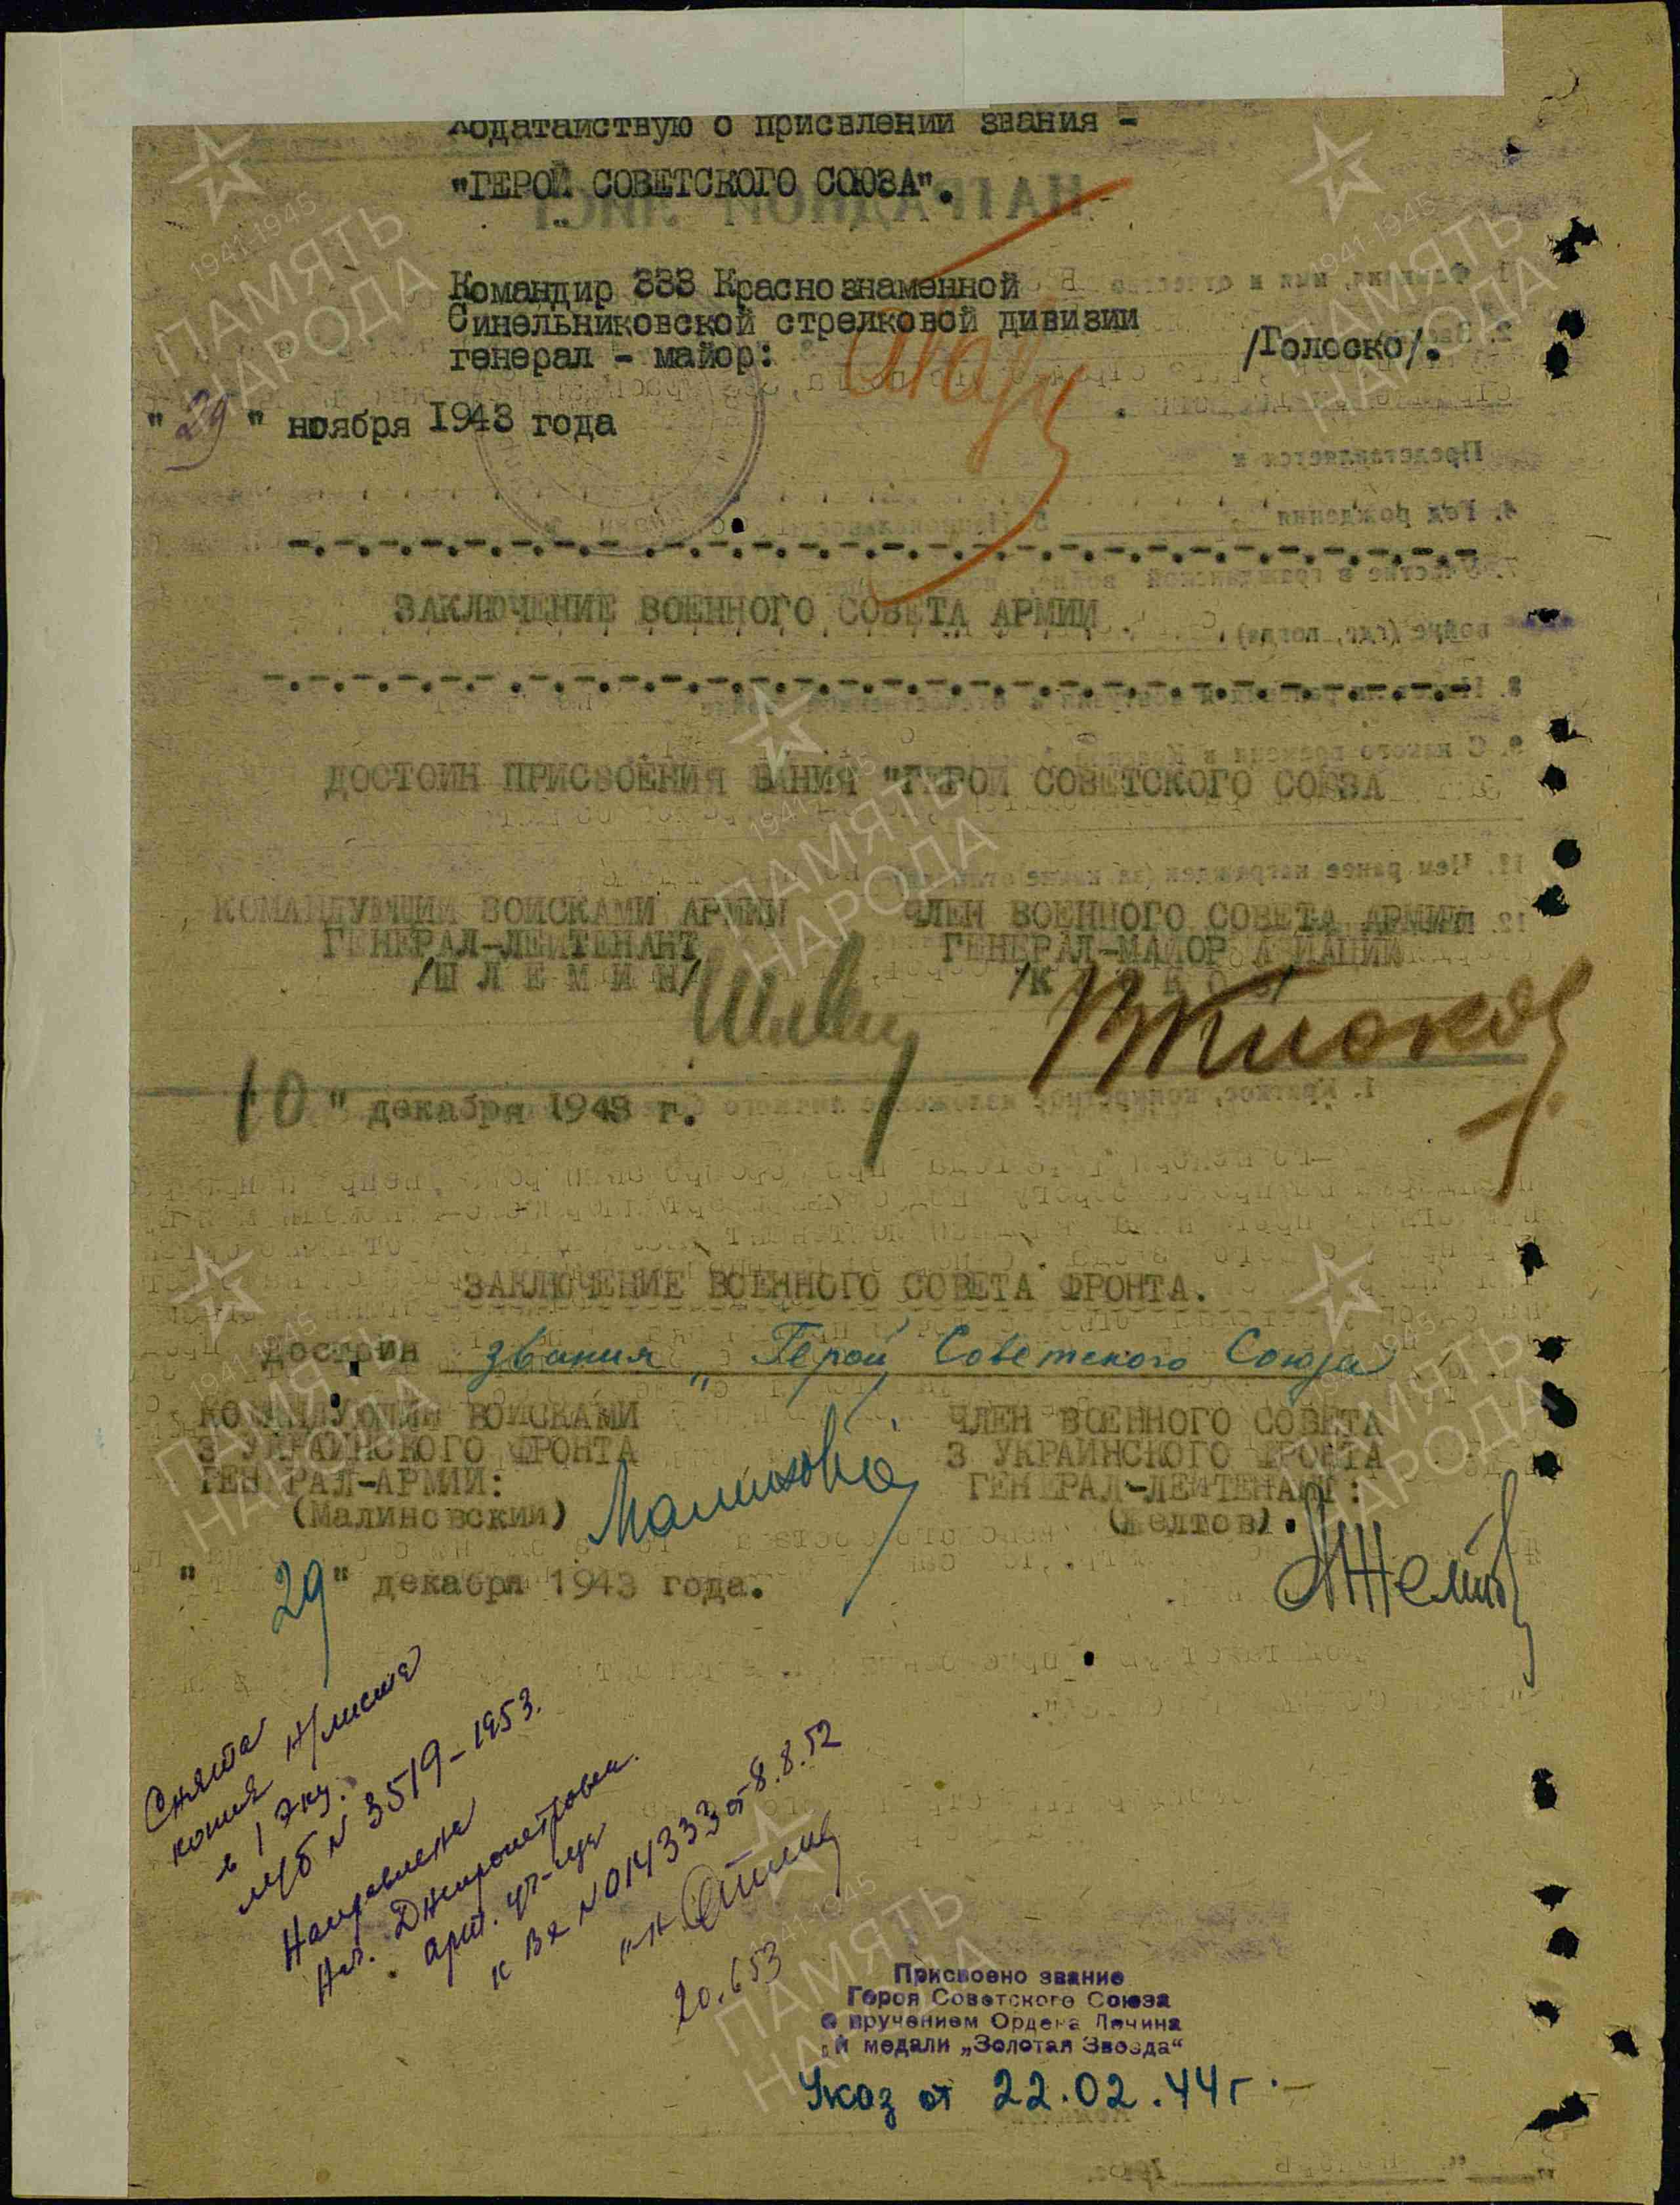 Ходатайствую о присвлении звания -
"ГЕРОЙ СОВЕТСКОГО СОЮЗА".
Командир 333 Краснознаменной
Синельниковской стрелковой дивизии
генерал - майор: /Голоско/.
"29" ноября 1943 года
ЗАКЛЮЧЕНИЕ ВОЕННОГО СОВЕТА АРМИИ
ДОСТОИН ПРИСВОЕНИЯ ВАНИЯ "ГЕРОЙ СОВЕТСКОГО СОЮЗА
КОМАНДУЮЩИЙ ВОЙСКАМИ АРМИИ
ГЕНЕРАЛ-ЛЕЙТЕНАНТ
/Ш Л Е М И Н/
ЧЛЕН ВОЕННОГО СОВЕТА АРМИИ
ГЕНЕРАЛ-МАЙОР АВИАЦИИ
10 " декабря 1943 г.
ЗАКЛЮЧЕНИЕ ВОЕННОГО СОВЕТА ФРОНТА.
достоин звания "Герой Советского Союза
КОМАНДУЮЩИЙ ВОЙСКАМИ
3 УКРАИНСКОГО ФРОНТА
ГЕНЕРАЛ-АРМИИ:
(Малиновский)
ЧЛЕН ВОЕННОГО СОВЕТА
3 УКРАИНСКОГО ФРОНТА
ГЕНЕРАЛ-ЛЕЙТЕНАНТ:
(Желтов).
" 29" декабря 1943 года.
Снята
копия н/листа
в 1 экз.
муб № 3519-1953.
Направлена
Нач. Днепропетровск.
арт. уч-ща
к вх № 014333 от 8.8.52
20.6.53
Присвоено звание
Героя Советского Союза
с вручением Ордена Ленина
и медали „Золотая Звезда“
Указ от 22.02.44г.-
1941-1945
ПАМЯТЬ
НАРОДА
1941-1945
ПАМЯТЬ
НАРОДА
1941-1945
ПАМЯТЬ
НАРОДА
1941-1945
ПАМЯТЬ
НАРОДА
1941-1945
ПАМЯТЬ
НАРОДА
1941-1945
ПАМЯТЬ
НАРОДА